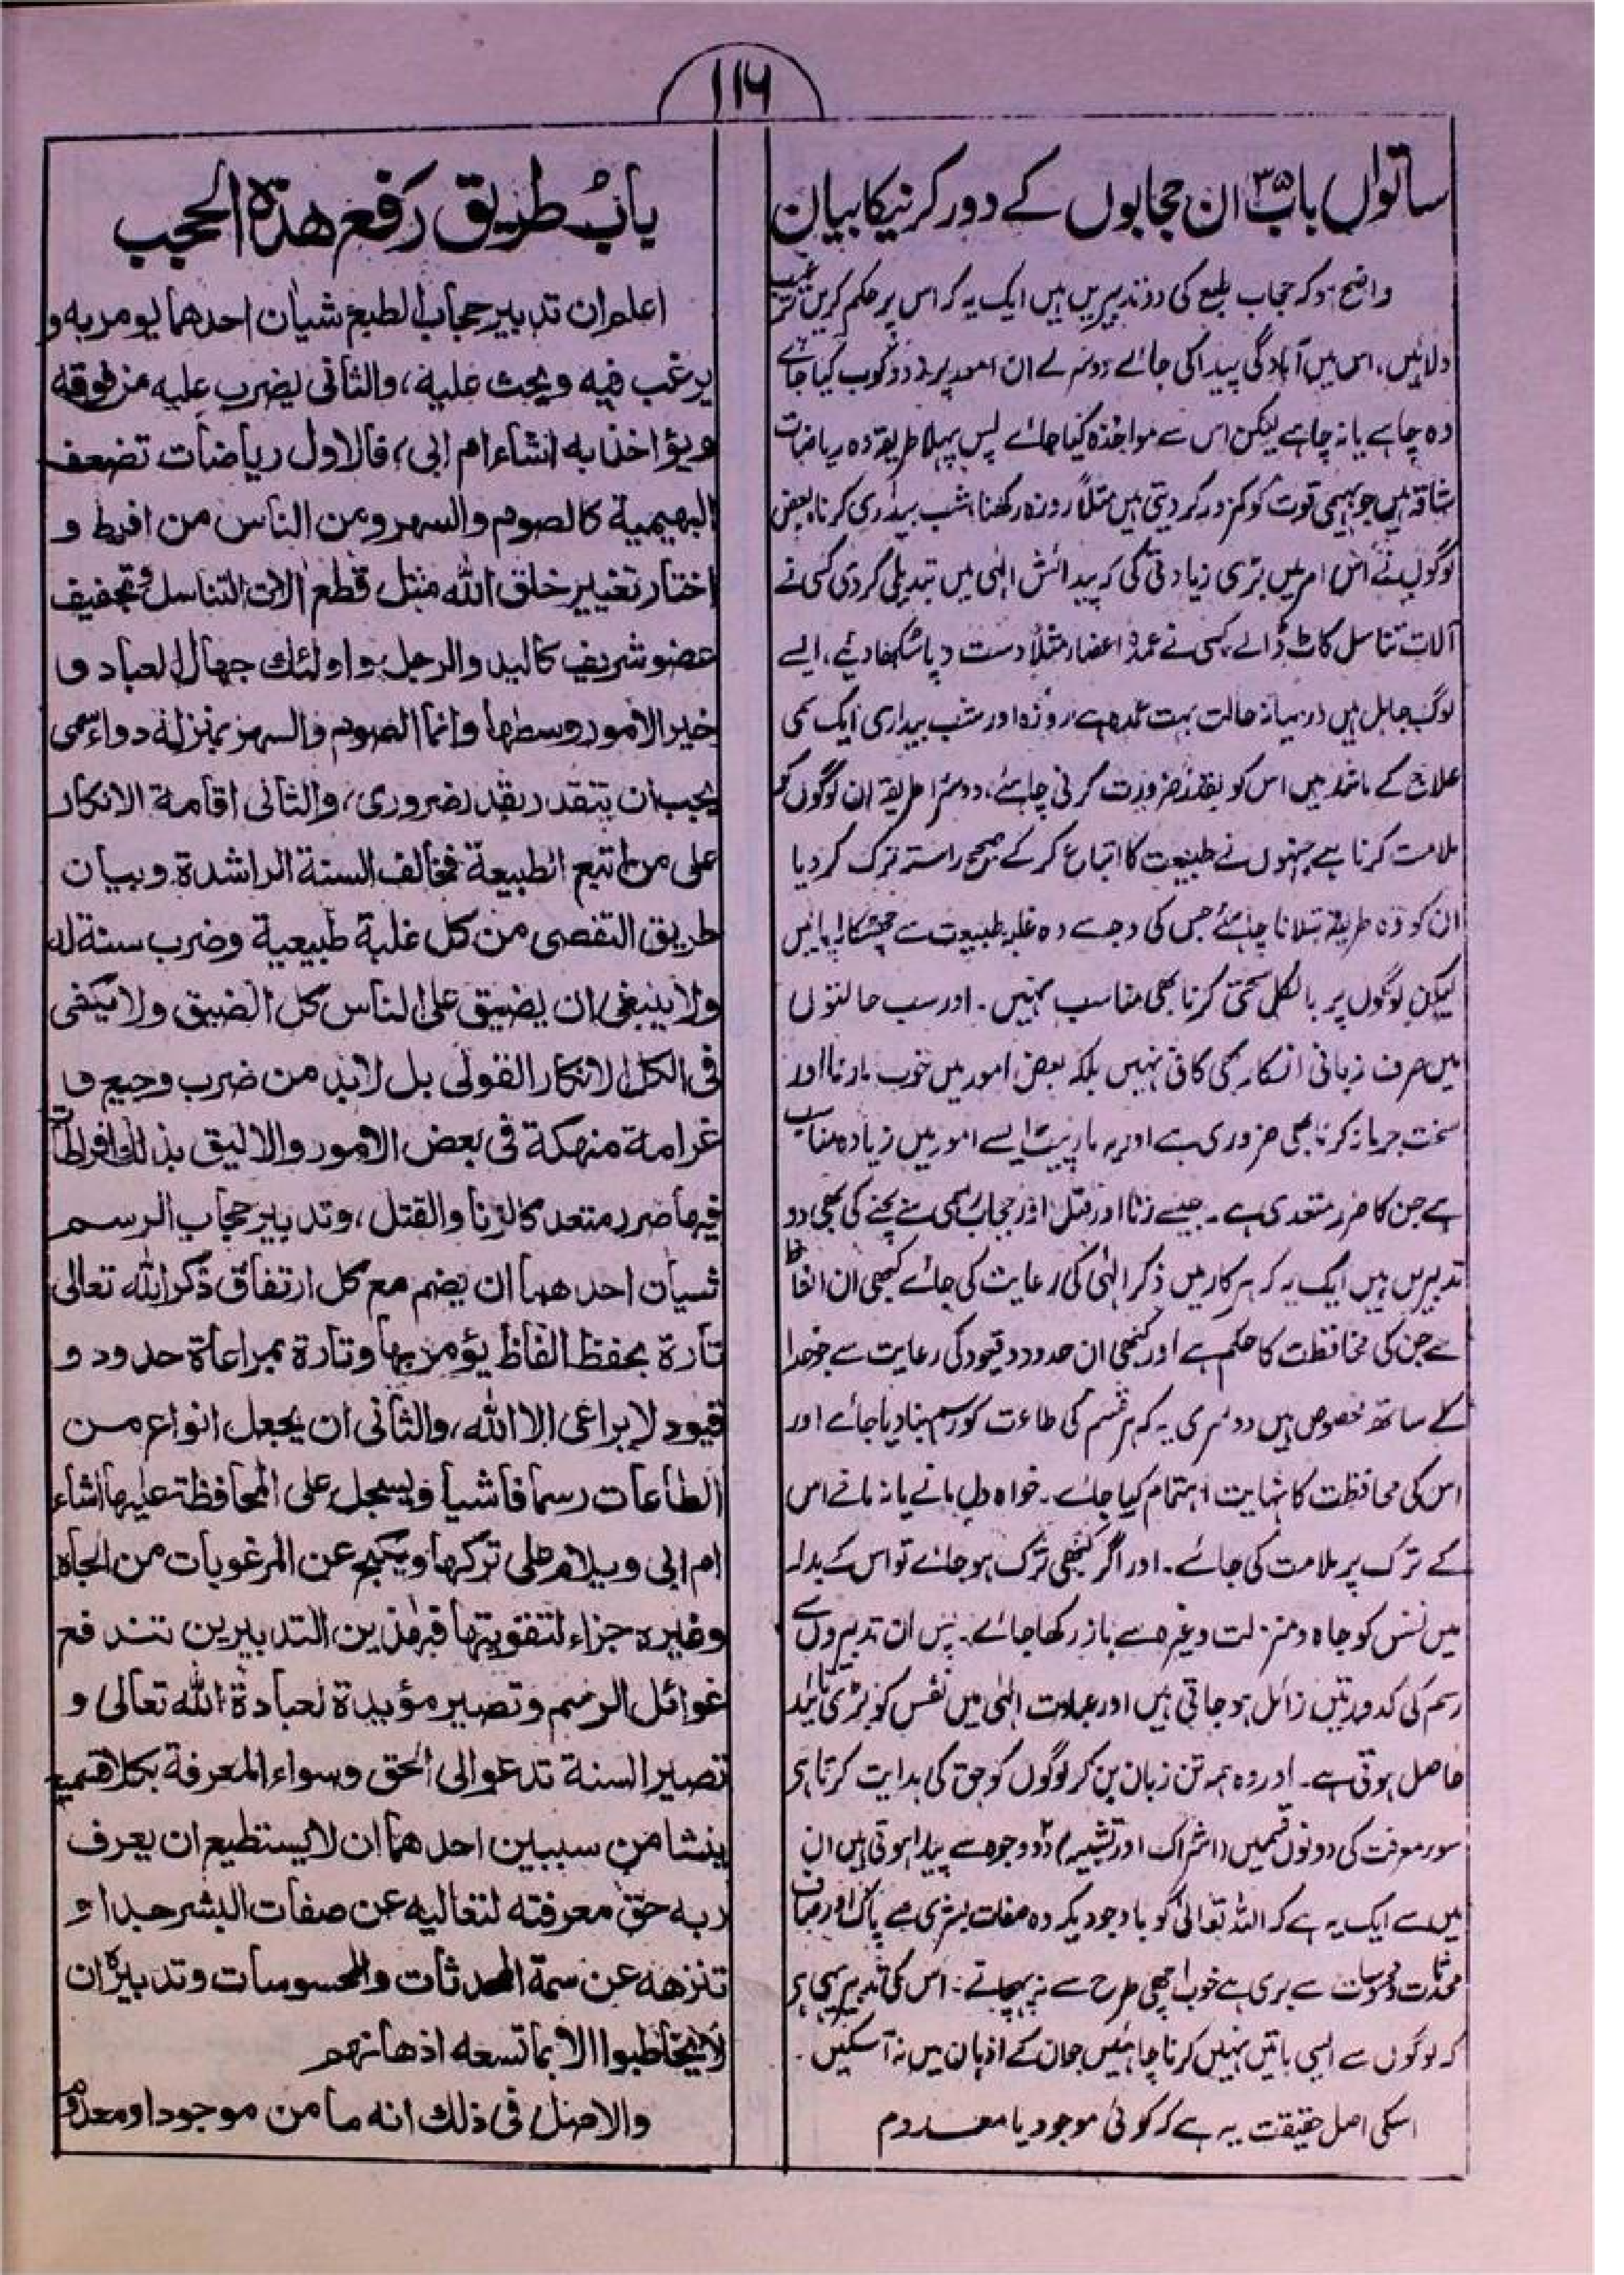 ۱۱۶
ساتواں باب ۳۵ ان حجابوں کے دور کرنیکا بیان
واضح ہو کہ حجاب طبع کی دو تدبیریں ہیں ایک یہ کہ اس پر حکم کریں ترغیب
دلائیں، اس میں آمادگی پیدا کی جائے دوسرے ان امور پر زدوکوب کیا جائے
وہ چاہے یا نہ چاہے لیکن اس سے مواخذہ کیا جائے پس پہلا طریقہ وہ ریاضات
شاقہ ہیں جو بہیمی قوت کو کمزور کر دیتی ہیں مثلاً روزہ رکھنا، شب بیداری کرنا بعض
لوگوں نے اس امر میں بڑی زیادتی کی کہ پیدائش الٰہی میں تبدیلی کر دی کسی نے
آلات تناسل کاٹ ڈالے کسی نے عمدہ اعضاء مثلاً دست و پا سکھا دیئے، ایسے
لوگ جاہل ہیں درمیانہ حالت بہت عمدہ ہے روزہ اور شب بیداری ایک سمی
علاج کے مانند ہیں اس کو بقدر ضرورت کرنی چاہئے، دوسرا طریقہ ان لوگوں کو
ملامت کرنا ہے جنہوں نے طبیعت کا اتباع کر کے صحیح راستہ ترک کر دیا
ان کو وہ طریقہ بتلانا چاہئے جس کی وجہ سے وہ غلبہ طبیعت سے چھٹکارا پائیں
لیکن لوگوں پر بالکل سختی کرنا بھی مناسب نہیں۔ اور سب حالتوں
میں صرف زبانی انکار ہی کافی نہیں بلکہ بعض امور میں خوب مارنا اور
سخت جرمانہ کرنا بھی ضروری ہے اور یہ مار پیٹ ایسے امور میں زیادہ مناسب
ہے جن کا ضرر متعدی ہے۔ جیسے زنا اور قتل اور حجاب رسمی سے بچنے کی بھی دو
تدبیریں ہیں ایک یہ کہ ہر کار میں ذکر الٰہی کی رعایت کی جائے کبھی ان الفاظ
سے جن کی محافظت کا حکم ہے اور کبھی ان حدود و قیود کی رعایت سے جو خدا
کے ساتھ مخصوص ہیں دوسری یہ کہ ہر قسم کی طاعت کو رسم بنا دیا جائے اور
اس کی محافظت کا نہایت اہتمام کیا جائے۔ خواہ دل مانے یا نہ مانے اس
کے ترک پر ملامت کی جائے۔ اور اگر کبھی ترک ہو جائے تو اس کے بدلہ
میں نفس کو جاہ و منزلت وغیرہ سے باز رکھا جائے۔ پس ان تدبیروں سے
رسم کی کدورتیں زائل ہو جاتی ہیں اور عبادت الٰہی میں نفس کو بڑی تائید
حاصل ہوتی ہے۔ اور وہ ہمہ تن زبان بن کر لوگوں کو حق کی ہدایت کرتا ہی
سوء معرفت کی دونوں قسمیں (اشراک اور تشبیہ) دو وجوہ سے پیدا ہوتی ہیں ان
میں سے ایک یہ ہے کہ اللہ تعالیٰ کو باوجودیکہ وہ صفات بشری سے پاک اور
محدثات و محسوسات سے بری ہے خوب اچھی طرح سے نہ پہچانے۔ اس کی تدبیر یہی ہی
کہ لوگوں سے ایسی باتیں نہیں کرنا چاہئیں جو ان کے اذہان میں نہ آسکیں۔
اسکی اصل حقیقت یہ ہے کہ کوئی موجود یا معدوم
باب طریق رفع هذه الحجب
اعلم ان تدبیر حجاب الطبع شیان احدهما یومر به و
یرغب فیه ویحث علیه، والثانی یضرب علیه من فوقه
ویؤاخذ به اشاء ام ابی، فالاول ریاضات تضعف
البهیمیة کالصوم والسهر ومن الناس من افرط و
اختار تغییر خلق الله مثل قطع الات التناسل وتجفیف
عضو شریف کالید والرجل واولئك جهال العباد و
خیر الامور وسطها وانما الصوم والسهر بمنزلة دواء سمی
یجب ان یتقدر بقدر ضروری، والثانی اقامة الانکار
علی من اتبع الطبیعة فخالف السنة الراشدة وبیان
طریق التفصی من کل غلبة طبیعیة وضرب سنة له
ولا ینبغی ان یضیق علی الناس کل الضیق ولا یکفی
فی الکل الانکار القولی بل لابد من ضرب وجیع و
غرامة منهکة فی بعض الامور والالیق بذلك افراطات
فیها ضرر متعد کالزنا والقتل، وتدبیر حجاب الرسم
شیان احدهما ان یضم مع کل ارتفاق ذکر الله تعالی
تارة بحفظ الفاظ یؤمر بها وتارة بمراعاة حدود و
قیود لا یراعی الا الله، والثانی ان یجعل انواع من
الطاعات رسما فاشیا ویسجل علی المحافظة علیها اشاء
ام ابی ویلام علی ترکها ویکبح عن المرغوبات من الجاه
وغیره جزاء لتفویتها فبهذین التدبیرین تندفع
غوائل الرسم وتصیر مؤیدة لعبادة الله تعالی و
تصیر السنة تدعو الی الحق وسوء المعرفة بکلا قسمیه
ینشا من سببین احدهما ان لا یستطیع ان یعرف
ربه حق معرفته لتعالیه عن صفات البشر جدا و
تنزهه عن سمة المحدثات والمحسوسات وتدبیره ان
لا یخاطبوا الا بما تسعه اذهانهم
والاصل فی ذلك انه ما من موجود او معدوم